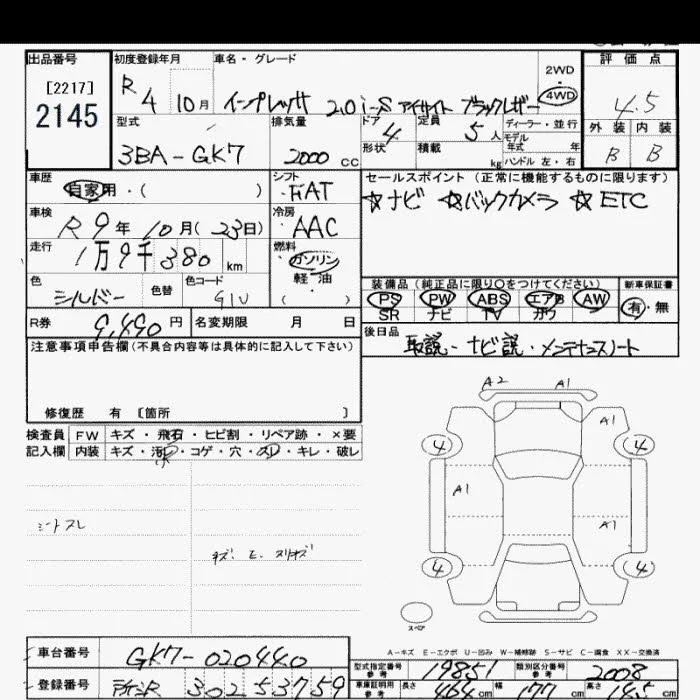 出品番号 初度登録年月 車名・グレード 評価点
[2217]
2145
R 4 10月 インプレッサ 2.0i-S アイサイト ブラックレザー
2WD
・
4WD
4.5
型式 排気量 ドア 定員 ディーラー・並行 外装 内装
3BA-GK7 2000cc 4 5人 モデル年式 年 B B
形状 積載 kg ハンドル 左・右
車歴 シフト セールスポイント (正常に機能するものに限ります)
自家用・( ) FIAT ☆ナビ ☆バックカメラ ☆ETC
車検 冷房
R9年10月(23日) AAC
走行 燃料
1万9千380km ガソリン
軽油
( )
色 色替 色コード
シルバー G1U
装備品(純正品に限り○をつけてください) 新車保証書
PS PW ABS エアB AW 有・無
SR ナビ TV カワ
R券 9,490円 名変期限 月 日
後日品 取説・ナビ説・メンテナンスノート
注意事項申告欄(不具合内容等は具体的に記入して下さい)
修復歴 有 [箇所 ]
検査員 FW キズ・飛石・ヒビ割・リペア跡・×要
記入欄 内装 キズ・汚レ・コゲ・穴・スレ・キレ・破レ
A2 A1
A1
4 4
A1
A1
シートスレ
キズ、E、スリキズ
4 4
スペア
A-キズ E-エクボ U-凹み W-補修跡 S-サビ C-腐食 XX-交換済
車台番号 GK7-020440
型式指定番号 参考 19851 類別区分番号 参考 2008
登録番号 所沢 302 ス 3759
車庫証明用 参考 長さ 464cm 幅 177cm 高さ cm